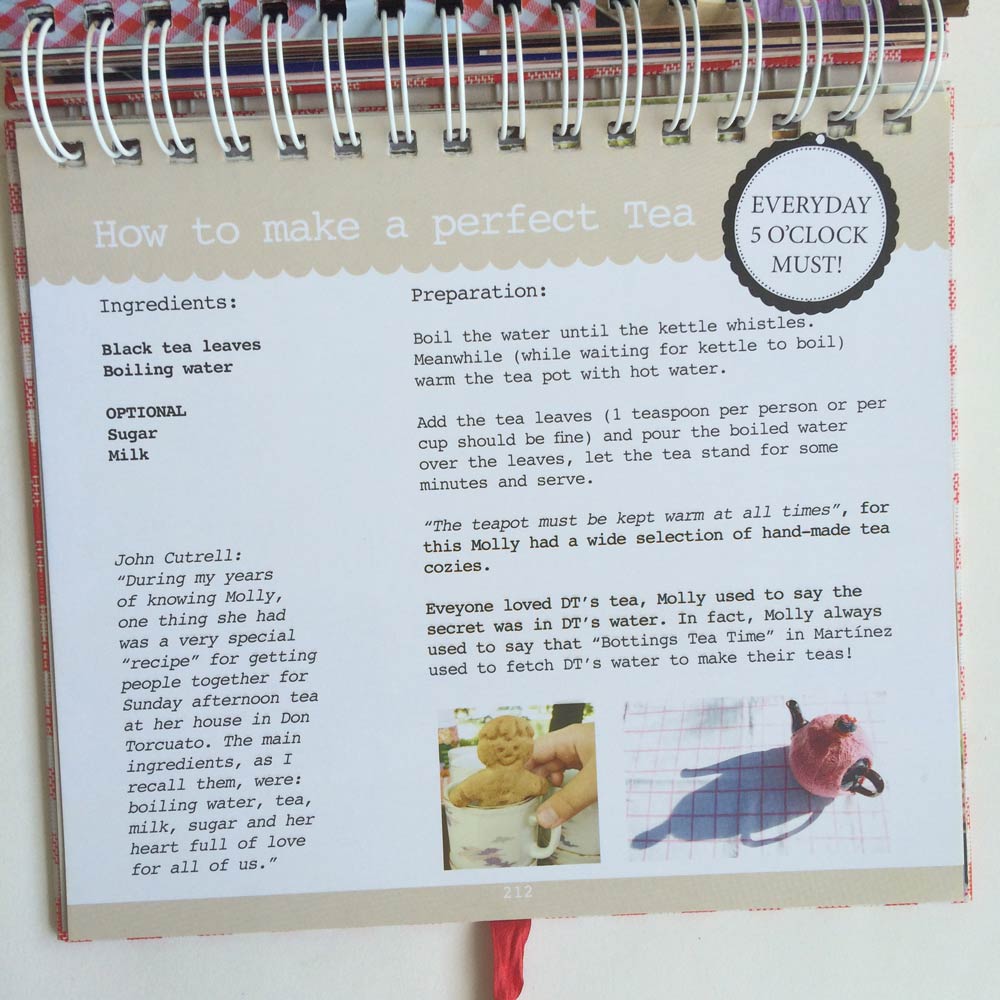 How to make a perfect Tea
EVERYDAY
5 O'CLOCK
MUST!
Ingredients:
Black tea leaves
Boiling water
OPTIONAL
Sugar
Milk
John Cutrell:
“During my years
of knowing Molly,
one thing she had
was a very special
“recipe” for getting
people together for
Sunday afternoon tea
at her house in Don
Torcuato. The main
ingredients, as I
recall them, were:
boiling water, tea,
milk, sugar and her
heart full of love
for all of us.”
Preparation:
Boil the water until the kettle whistles.
Meanwhile (while waiting for kettle to boil)
warm the tea pot with hot water.
Add the tea leaves (1 teaspoon per person or per
cup should be fine) and pour the boiled water
over the leaves, let the tea stand for some
minutes and serve.
“The teapot must be kept warm at all times”, for
this Molly had a wide selection of hand-made tea
cozies.
Eveyone loved DT’s tea, Molly used to say the
secret was in DT’s water. In fact, Molly always
used to say that “Bottings Tea Time” in Martínez
used to fetch DT’s water to make their teas!
212